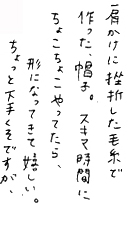 肩かけに挫折した毛糸で
作った、帽子。スキマ時間に
ちょこちょこやってたら、
形になってきて嬉しい。
ちょっと下手くそですが、